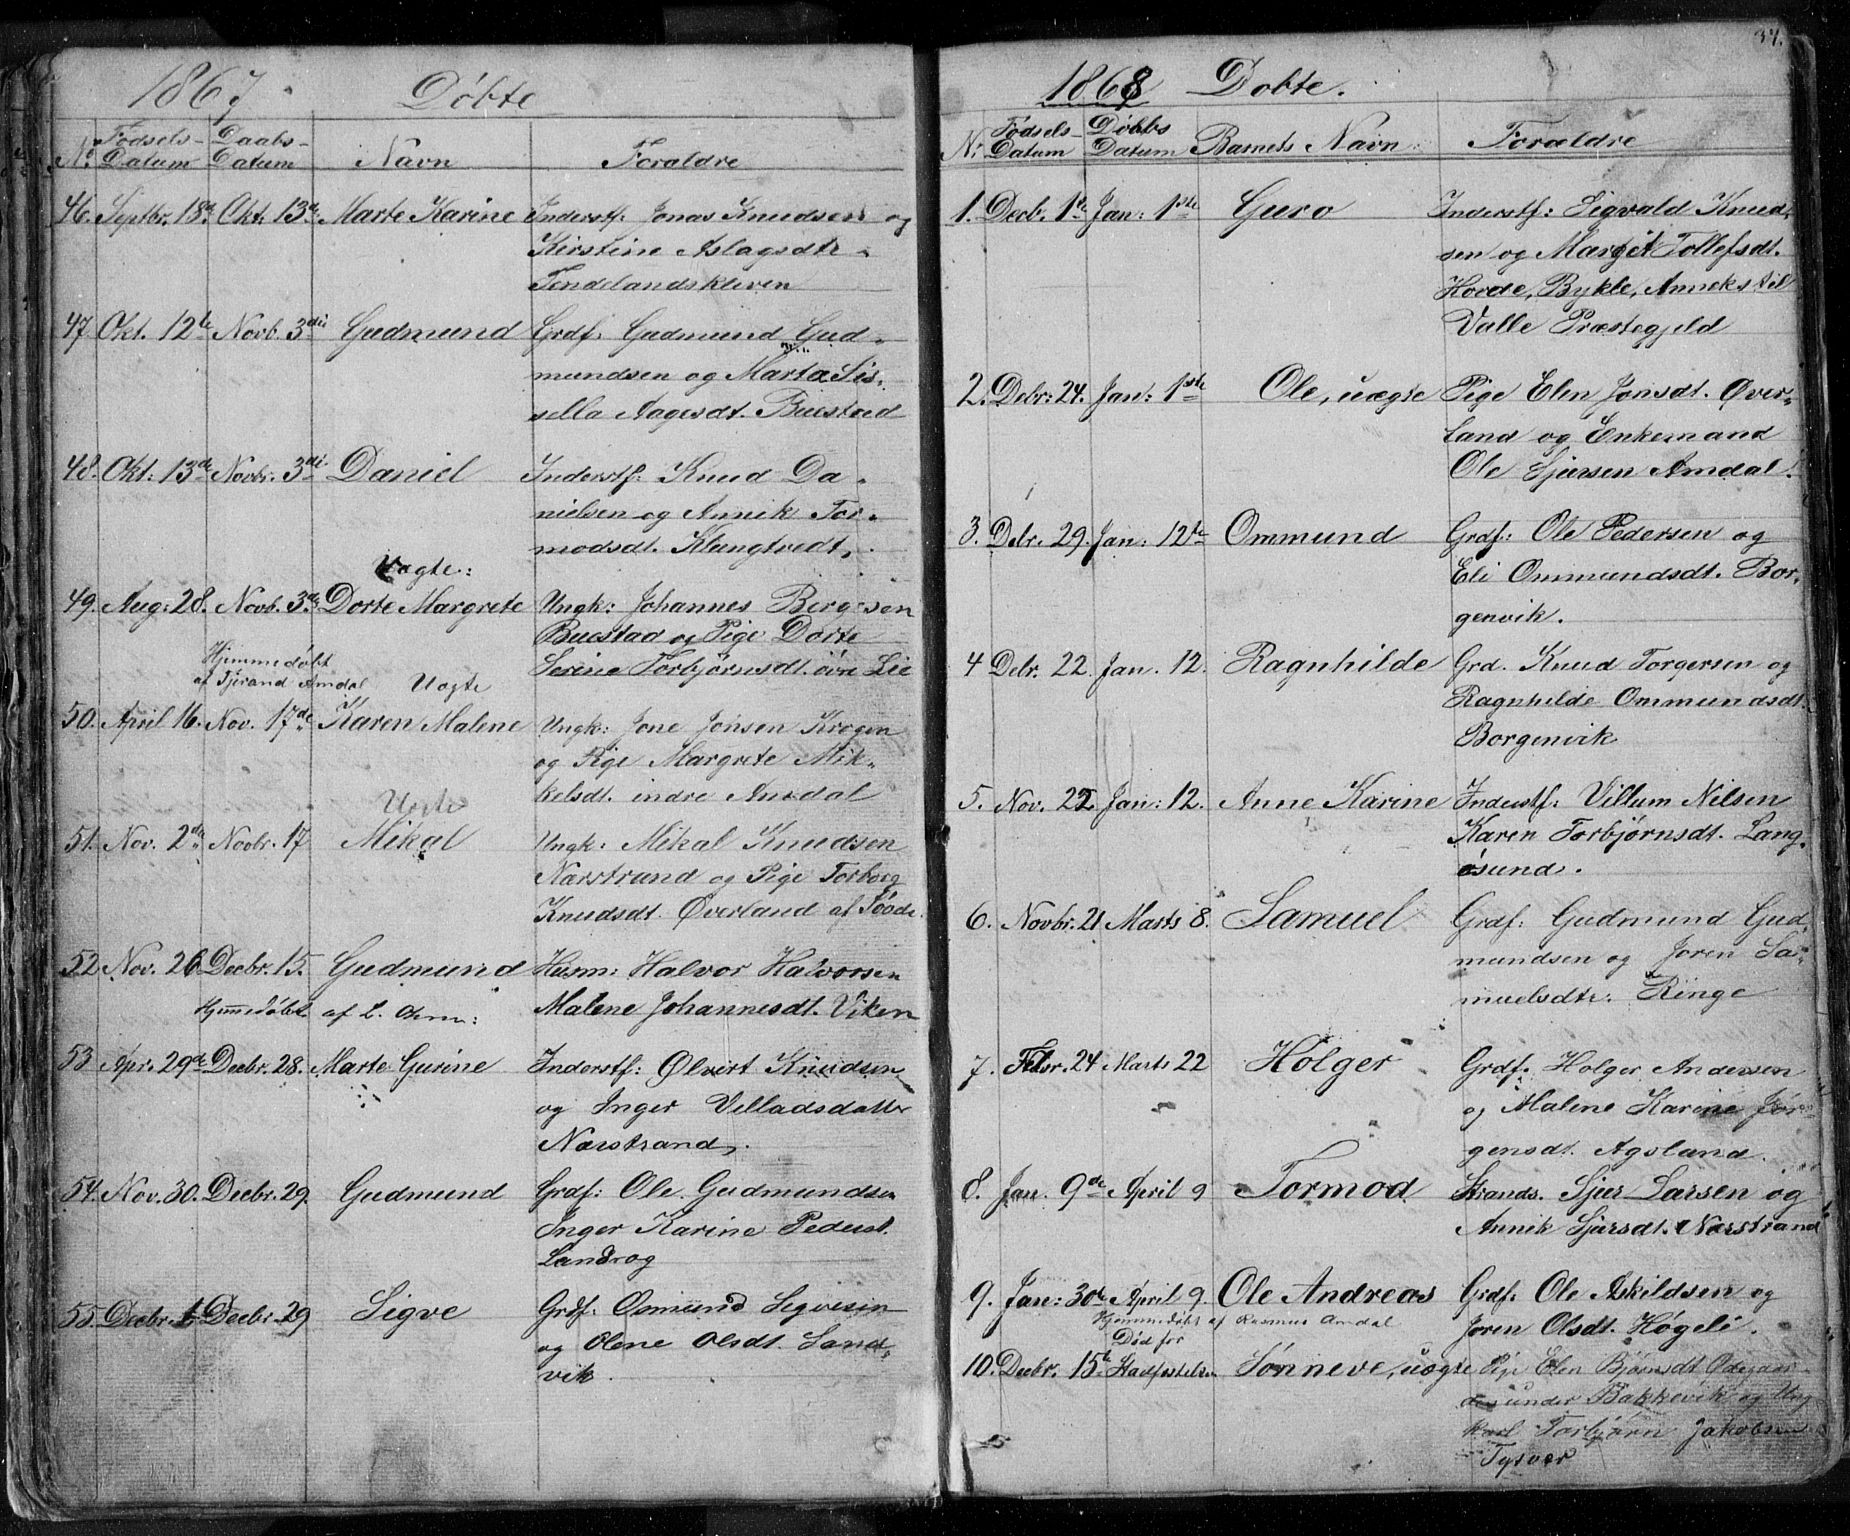 1867 Døbte
No Fødsels- Datum Daabs- Datum Navn Forældre
46. Septbr. 18de Okt. 13de Marte Karine Inderstf: Jonas Knudsen og
Kirstine Aslagsdtr
Tendelandskleven
47. Okt. 12te Novb. 3die Gudmund Grdf. Gudmund Gud-
mundsen og Marta Sis-
sella Aagesdt. Buestad
48. Okt: 13de Novbr. 3di Daniel Inderstf: Knud Da-
nielsen og Annik Tor-
modsdt. Klungtvedt.
Uægte:
49. Aug: 28. Novb. 3di Dorte Margrete Ungk: Johannes Bergesen
Buestad og Pige Dorte
Serine Torbjørnsdt. øvre Lie
Hjemmedøbt
af Tjerand Amdal Uægte
50. April 16. Nov. 17de Karen Malene Ungk: Jone Jonsen Krogen
og Pige Margrete Mik-
kelsdt. indre Amdal
Uægte
51. Nov. 2den Novbr. 17 Mikal Ungk: Mikal Knudsen
Narstrand og Pige Torborg
Knudsdt. Øverland af
52. Nov. 26 Decbr. 15. Gudmund Husm: Halvor Halvorsen
Hjemmedøbt af L. Malene Johannesdt. Viken
53 Apr. 29de Decbr. 28. Marte Gurine Inderstf: Ølvert Knudsen
og Inger Velladsdatter
Narstrand.
54. Nov. 30. Decbr. 29. Gudmund Grdf: Ole Gudmundsen
Inger Karine Pederst.
Landrog
55. Decbr. 1 Decbr. 29 Sigve Grdf: Osmund Segvesen
og Olene Olsdt. Sand-
vik.
37.
1868 Dobte.
N: Fødsels- Datum Døbbs Datum Barnets Navn Forældre
1. Decb. 1ste Jan: 1ste Guro Inderstf: Sigvald Knud-
sen og Margit Tollefsdt.
Hovde, Bykle, Anneks til
Valle Præstegjeld
2. Debr: 24. Jan: 1ste Ole, uægte Pige Elen Jonsdt. Øver-
land og Enkemand
Ole Sjursen Amdal.
3. Debr. 29. Jan: 12te Ommund Grdf: Ole Pedersen og
Eli Ommundsdt. Bor-
genvik.
4 Debr. 22. Jan. 12. Ragnhilde Grd. Knud Torgersen og
Ragnhilde Ommundsdt.
Borgenvik
5. Nov. 22. Jan: 12. Anne Karine Inderstf: Villum Nilsen
Karen Torbjørnsdt. Lang-
øsund.
6. Novbr. 21 Marts 8. Samuel Grdf: Gudmund Gud-
mundsen og Joren Sa-
muelsdtr: Ringe
7. Febr. 24 Marts 22 Holger Grdf. Holger Andersen
og Malene Karine Jør-
gensdt. Agsland.
8. Jan. 9de April 9 Tormod Strands. Sjur Larsen og
Annik Sjursdt. Narstrand
9. Jan: 30te April 9. Ole Andreas Grdf. Ole Askildsen og
Hjemmedøbt af Rasmus Amdal Joren Olsdt. Høgeli.
Død før
10. Decbr. 15de Stadfestelsen Sønneve, uægte Pige Elen Bjørnsdt
under Bakkevik og Ung-
karl Torbjørn Jakobsen
Tysvær